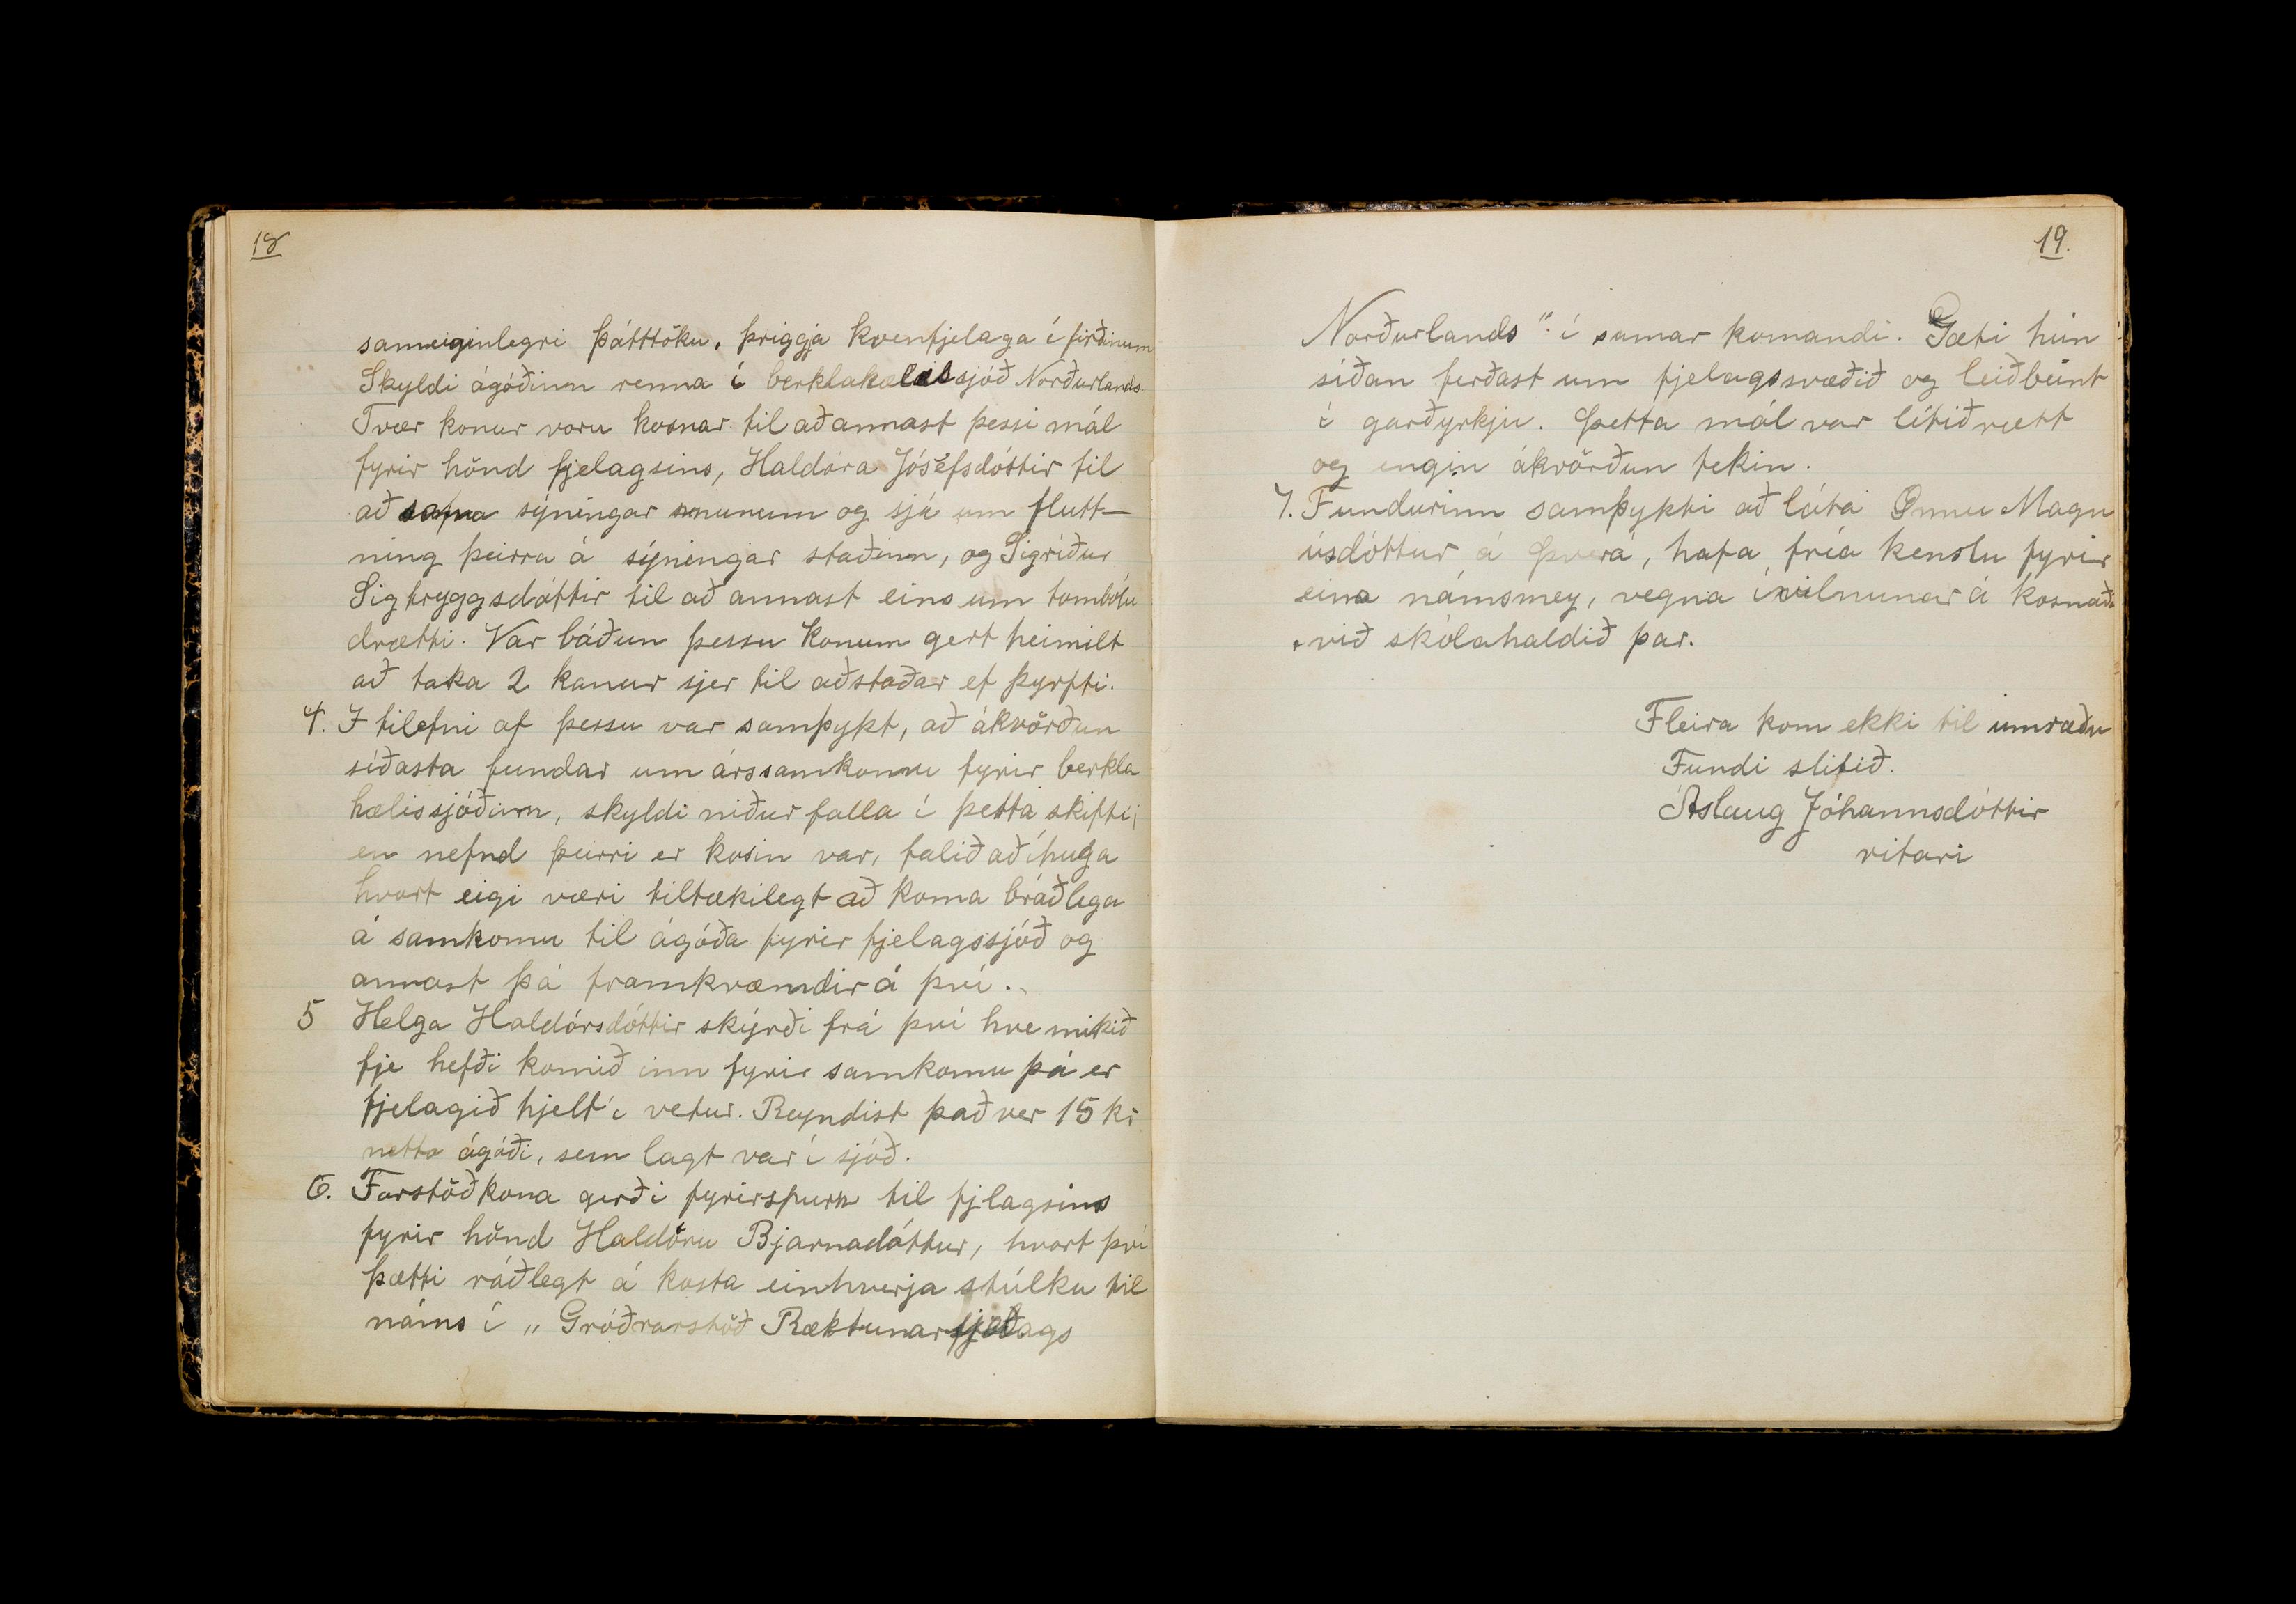 18
sameiginlegri þátttöku, þriggja kvenfjelaga í firðinum
Skyldi ágóðinn renna í berklahælissjóð Norðurlands.
Tvær konur voru kosnar til að annast þessi mál
fyrir hönd fjelagsins, Haldóra Jósefsdóttir til
að safna sýningar munum og sjá um flutt-
ning þeirra á sýningar staðinn, og Sigríður
Sigtryggsdóttir til að annast eins um tombólu
drætti. Var báðun þessu konum gert heimilt
að taka 2 konur sjer til aðstoðar ef þyrfti.
4. I tilefni af þessu var samþykt, að ákvörðun
síðasta fundar um árssamkomu fyrir berkla
hælissjóðinn, skyldi niður falla í þetta skifti,
en nefnd þeirri er kosin var, falið að íhuga
hvort eigi væri tiltækilegt að koma bráðlega
á samkomu til ágóða fyrir fjelagssjóð og
annast þá framkvæmdir á því.
5 Helga Haldórsdóttir skýrði frá því hve mikið
fje hefði komið inn fyrir samkomu þá er
fjelagið hjelt í vetur. Reyndist það ver 15 kr
netto ágóði, sem lagt var í sjóð.
6. Forstöðkona gerði fyrirspurn til fjlagsins
fyrir hönd Haldóru Bjarnadóttur, hvort því
þætti ráðlegt á kosta einhverja stúlku til
náms í „Gróðrarstöð Ræktunarfjelags
19.
Norðurlands". í sumar komandi. Gæti hún
síðan ferðast um fjelagssvæðið og leiðbeint
í garðyrkju. Þetta mál var lítið rætt
og engin ákvörðun tekin.
7. Fundurinn samþykti að láta Önnu Magn
úsdóttur á Þverá, hafa fría kenslu fyrir
eina námsmey, vegna ívilnunar á kosnaði
við skólahaldið þar.
Fleira kom ekki til umræðu
Fundi slitið.
Áslaug Jóhannsdóttir
ritari